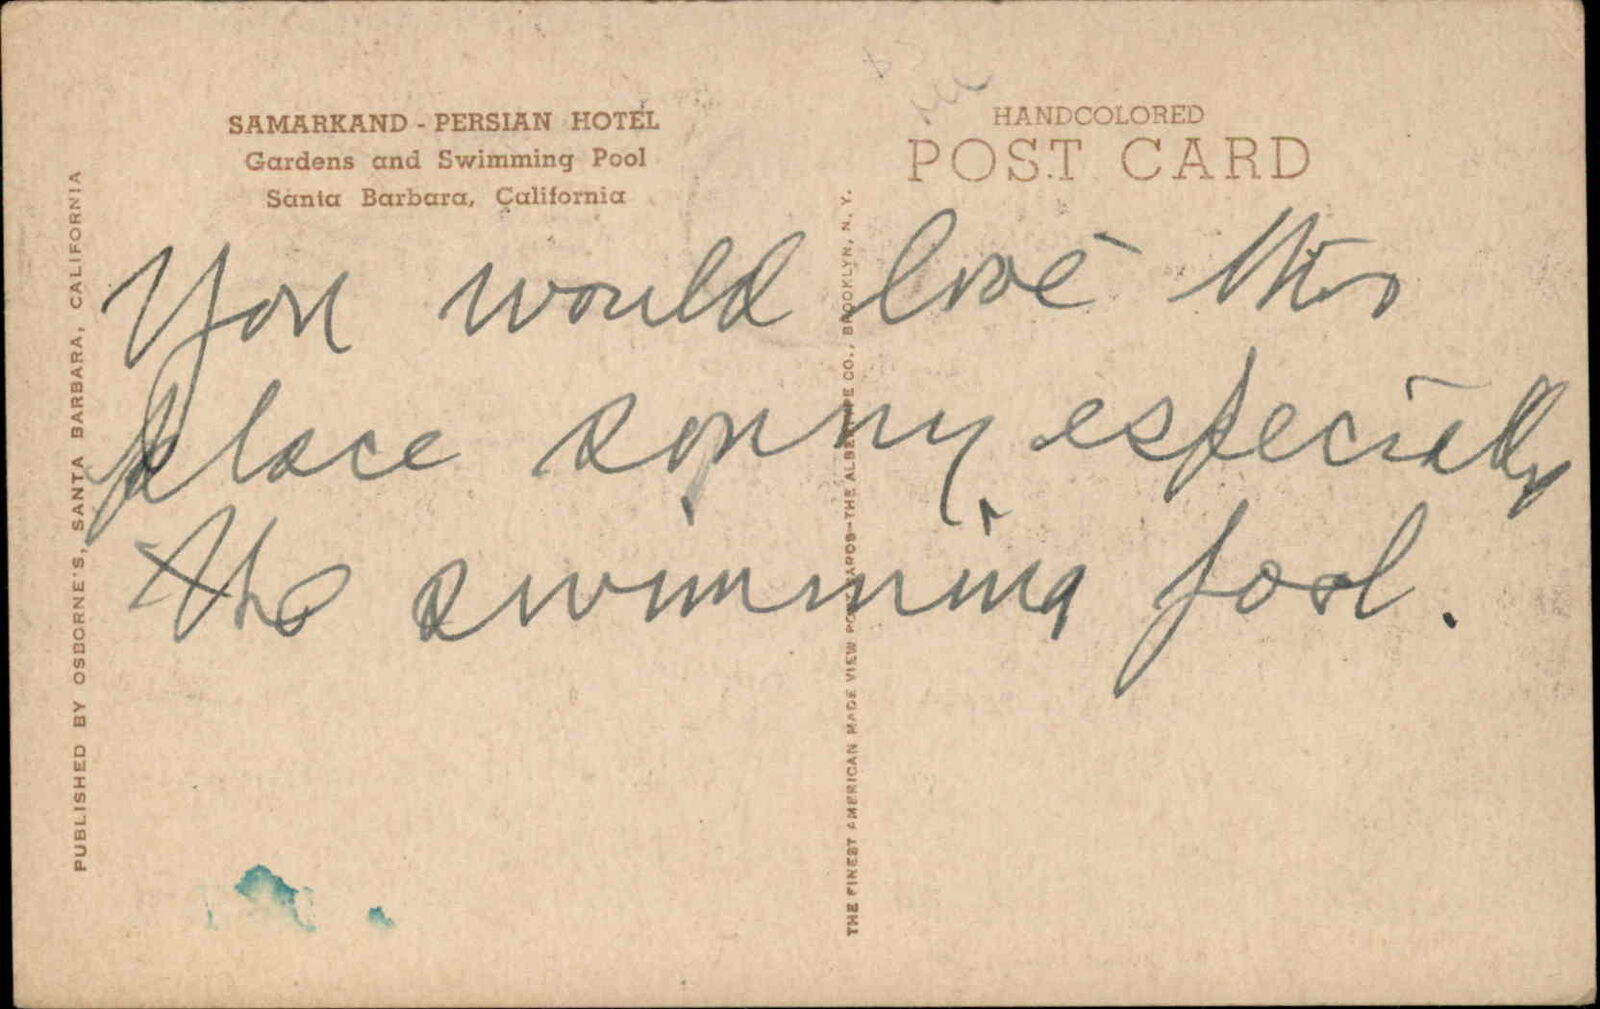 SAMARKAND - PERSIAN HOTEL
Gardens and Swimming Pool
Santa Barbara, California
HANDCOLORED
POST CARD
You would love this
place sonny especially
the swimming pool.
PUBLISHED BY OSBORNE'S, SANTA BARBARA, CALIFORNIA
THE FINEST AMERICAN MADE VIEW POST CARDS—THE ALBERTYPE CO., BROOKLYN, N. Y.